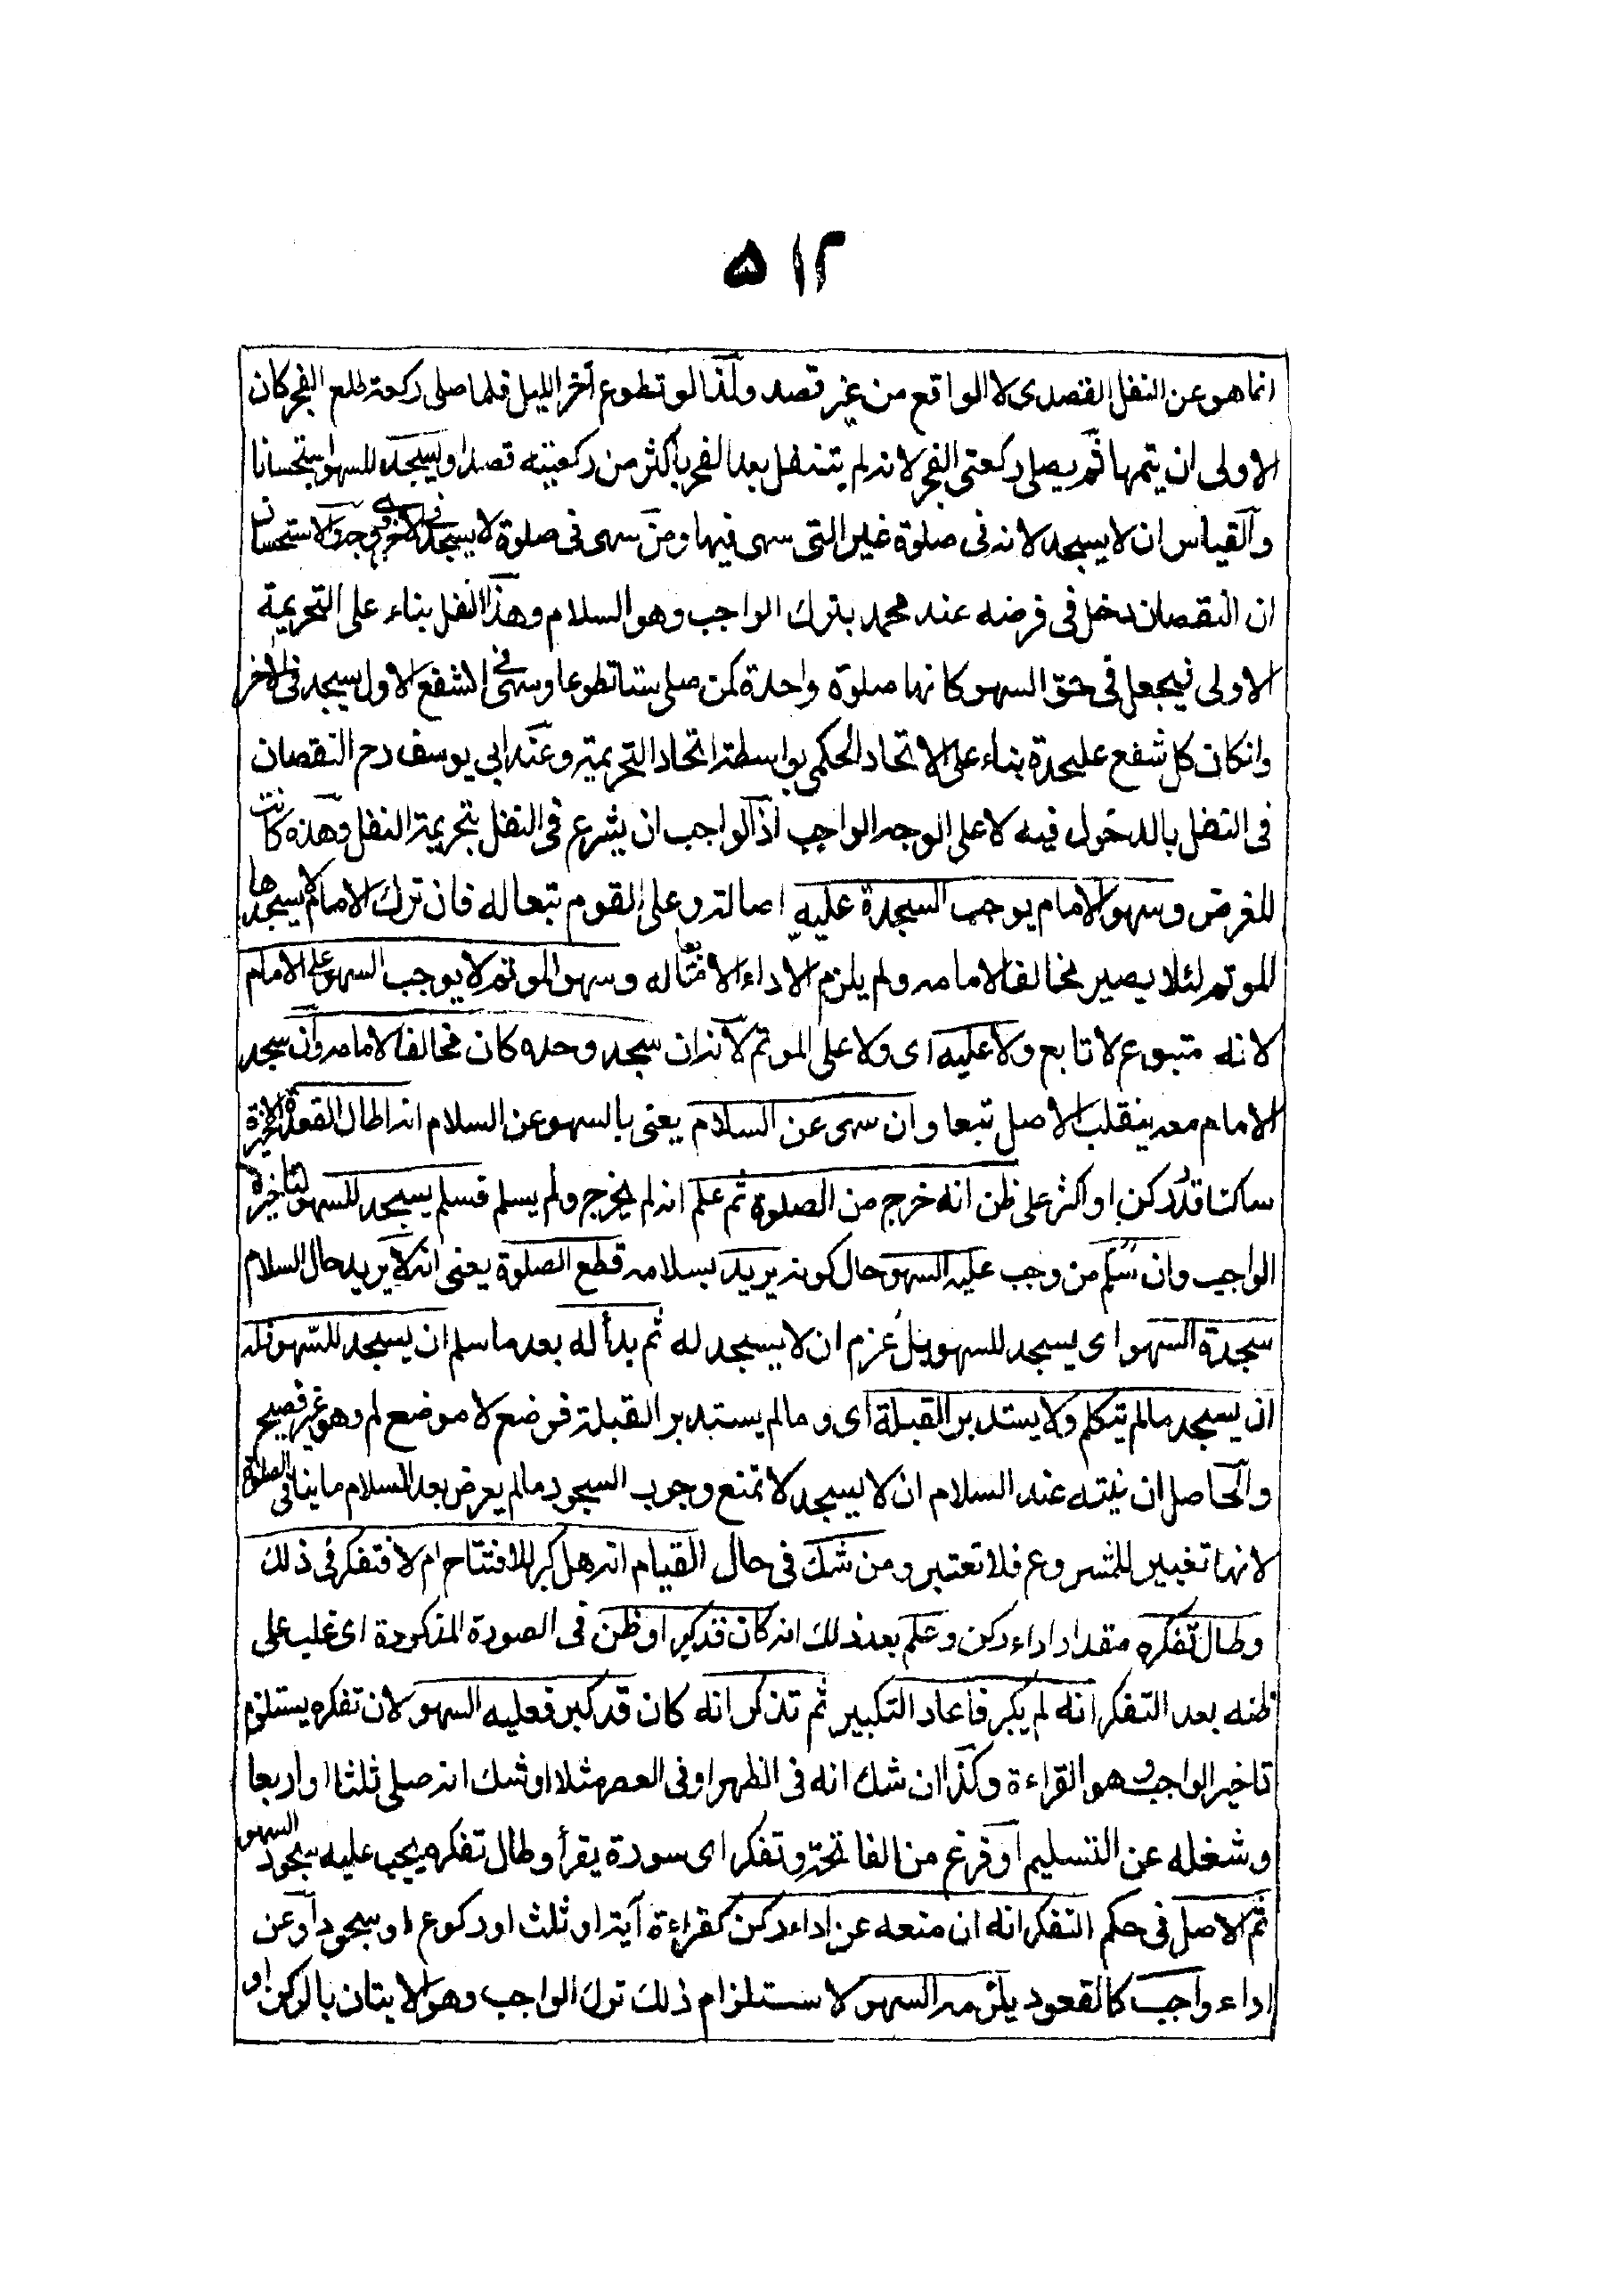 ٥١٢
انما هو عن النفل القصدى لا الواقع من غير قصد ولذا لو تطوع آخر الليل فلما صلى ركعة طلع الفجر كان
الاولى ان يتمها ثم يصلى ركعتى الفجر لانه لم يتنفل بعد الفجر باكثر من ركعتيه قصدا ويسجد للسهو استحسانا
والقياس ان لا يسجد لانه فى صلوة غير التى سهى فيها ومن سهى فى صلوة لا يسجد فى اخرى وجه الاستحسان
ان النقصان دخل فى فرضه عند محمد بترك الواجب وهو السلام وهذا النفل بناء على التحريمة
الاولى فيجعل فى حق السهو كانها صلوة واحدة كمن صلى ستا تطوعا وسهى فى الشفع الاول يسجد فى الآخر
وانكان كل شفع عليحدة بناء على الاتحاد الحكمى بواسطة اتحاد التحريمة وعند ابى يوسف رح النقصان
فى النفل بالدخول فيه لا على الوجه الواجب اذ الواجب ان يشرع فى النفل بتحريمة النفل وهذه كانت
للفرض وسهو الامام يوجب السجدة عليه اصالة وعلى القوم تبعا له فان ترك الامام لا يسجدها
الموتم لئلا يصير مخالفا لامامه ولم يلزم الاداء الا متابعا له وسهو الموتم لا يوجب السهو على الامام
لانه متبوع لا تابع ولا عليه اى ولا على الموتم لانه ان سجد وحده كان مخالفا لامامه وان سجد
الامام معه ينقلب الاصل تبعا وان سهى عن السلام يعنى بالسهو عن السلام انه اطال القعدة الاخيرة
ساكتا قدر ركن او اكثر على ظن انه خرج من الصلوة ثم علم انه لم يخرج ولم يسلم فسلم يسجد للسهو لتاخيره
الواجب وان سلم من وجب عليه السهو حال كونه يريد بسلامه قطع الصلوة يعنى انه لا يريد حال السلام
سجدة السهو اى يسجد للسهو بل عزم ان لا يسجد له ثم بدأ له بعد ما سلم ان يسجد للسهو فله
ان يسجد ما لم يتكلم ولا يستدبر القبلة اى وما لم يستدبر القبلة فوضع لا موضع لم وهو غير فصيح
والحاصل ان نيته عند السلام ان لا يسجد لا تمنع وجوب السجود ما لم يعرض بعد السلام ما ينافى الصلوة
لانها تغيير للمشروع فلا تعتبر ومن شك فى حال القيام انه هل كبر للافتتاح ام لا فتفكر فى ذلك
وطال تفكره مقدار اداء ركن وعلم بعد ذلك انه كان قد كبر او ظن فى الصورة المذكورة اى غلب على
ظنه بعد التفكر انه لم يكبر فاعاد التكبير ثم تذكر انه كان قد كبر فعليه السهو لان تفكره يستلزم
تاخير الواجب وهو القراءة وكذا ان شك انه فى الظهر او فى العصر مثلا او شك انه صلى ثلثا او اربعا
وشغله عن التسليم او فرغ من الفاتحة وتفكر اى سورة يقرأ وطال تفكره يجب عليه سجود السهو
ثم الاصل فى حكم التفكر انه ان منعه عن اداء ركن كقراءة آية او ثلث او ركوع او سجود او عن
اداء واجب كالقعود يلزمه السهو لاستلزام ذلك ترك الواجب وهو الاتيان بالركن او